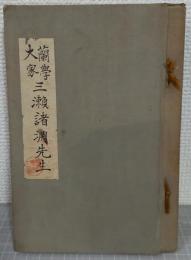 蘭學
大家
三瀬諸淵先生